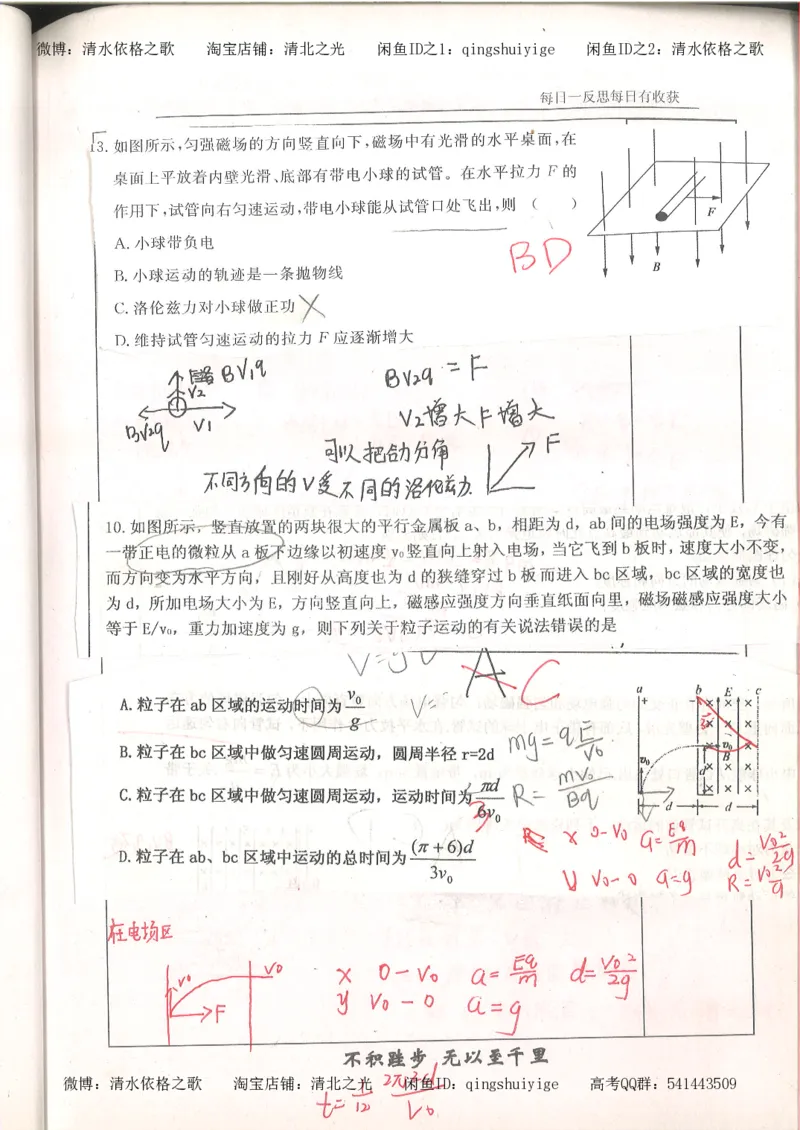 微博：清水依格之歌 淘宝店铺：清北之光 闲鱼ID之1：qingshuiyige 闲鱼ID之2：清水依格之歌
每日一反思每日有收获
13. 如图所示,匀强磁场的方向竖直向下,磁场中有光滑的水平桌面,在
桌面上平放着内壁光滑、底部有带电小球的试管。在水平拉力 F 的
作用下,试管向右匀速运动,带电小球能从试管口处飞出,则 （ ）
F
B
A. 小球带负电
BD
B. 小球运动的轨迹是一条抛物线
C. 洛伦兹力对小球做正功
D. 维持试管匀速运动的拉力 F 应逐渐增大
BV₁q
V₂
BV₂q V₁
BV₂q = F
V₂增大F增大
可以把合力分角 F
不同方向的V受不同的洛伦兹力
10. 如图所示，竖直放置的两块很大的平行金属板 a、b，相距为 d，ab 间的电场强度为 E，今有
一带正电的微粒从 a 板下边缘以初速度 v₀竖直向上射入电场，当它飞到 b 板时，速度大小不变，
而方向变为水平方向，且刚好从高度也为 d 的狭缝穿过 b 板而进入 bc 区域，bc 区域的宽度也
为 d，所加电场大小为 E，方向竖直向上，磁感应强度方向垂直纸面向里，磁场磁感应强度大小
等于 E/v₀，重力加速度为 g，则下列关于粒子运动的有关说法错误的是
A C
a b E c
+ -
v₀ v₀ B
d d d
A. 粒子在 ab 区域的运动时间为 v₀/g
B. 粒子在 bc 区域中做匀速圆周运动，圆周半径 r=2d
mg = q E/v₀
C. 粒子在 bc 区域中做匀速圆周运动，运动时间为 πd/6v₀
3
R = mv₀/Bq
x 0-V₀ a=Eq/m d=V₀²/2g
y V₀-0 a=g R=V₀²/g
D. 粒子在 ab、bc 区域中运动的总时间为 (π+6)d/3v₀
在电场区
V₀ V₀
F
x 0-V₀ a=Eq/m d=V₀²/2g
y V₀-0 a=g
不积跬步 无以至千里
微博：清水依格之歌 淘宝店铺：清北之光 闲鱼ID：qingshuiyige 高考QQ群：541443509
t=1/12 2π·2d/V₀